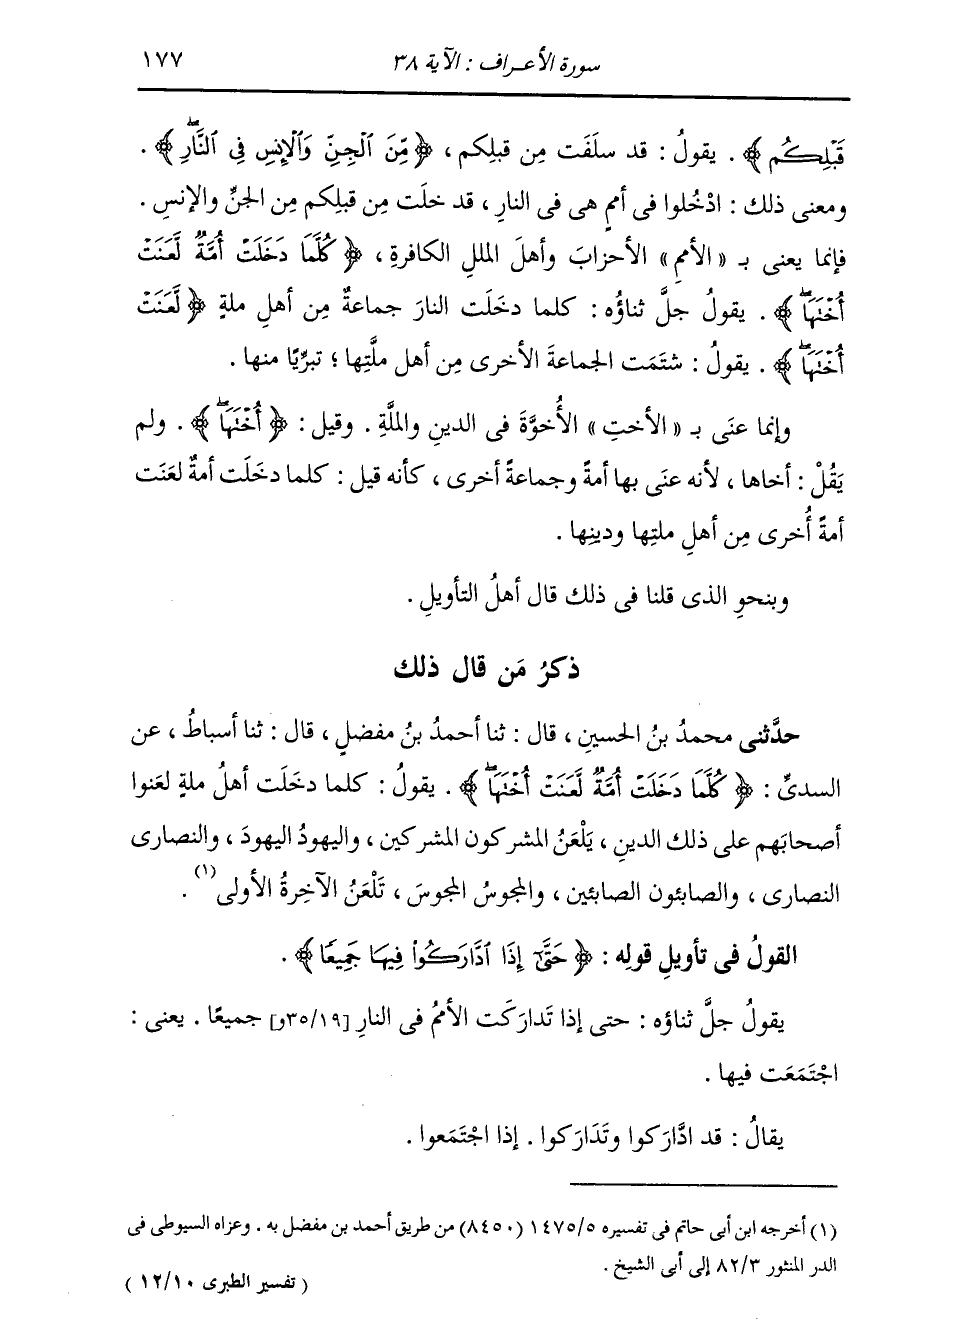 سورة الأعراف : الآية ٣٨ ١٧٧
قَبْلِكُم ﴾ . يقولُ : قد سلَفَت مِن قبلِكم ، ﴿ مِّنَ ٱلْجِنِّ وَٱلْإِنسِ فِى ٱلنَّارِۖ ﴾ .
ومعنى ذلك : ادْخُلوا فى أممٍ هى فى النارِ ، قد خلَت مِن قبلِكم مِن الجنِّ والإنسِ .
فإنما يعنى بـ « الأممِ » الأحزابَ وأهلَ المللِ الكافرةِ ، ﴿ كُلَّمَا دَخَلَتْ أُمَّةٌ لَّعَنَتْ
أُخْتَهَاۖ ﴾ . يقولُ جلَّ ثناؤُه : كلما دخلَت النارَ جماعةٌ مِن أهلِ ملةٍ ﴿ لَّعَنَتْ
أُخْتَهَاۖ ﴾ . يقولُ : شتَمَت الجماعةَ الأخرى مِن أهل ملَّتِها ؛ تبرِّيًا منها .
وإنما عنَى بـ « الأختِ » الأُخوَّةَ فى الدينِ والملَّةِ . وقيل : ﴿ أُخْتَهَاۖ ﴾ . ولم
يَقُلْ : أخاها ، لأنه عنَى بها أمةً وجماعةً أخرى ، كأنه قيل : كلما دخلَت أمةٌ لعَنَت
أمةً أُخرى مِن أهلِ ملتِها ودينِها .
وبنحوِ الذى قلنا فى ذلك قال أهلُ التأويلِ .
ذكرُ مَن قال ذلك
حدَّثنى محمدُ بنُ الحسينِ ، قال : ثنا أحمدُ بنُ مفضلٍ ، قال : ثنا أسباطُ ، عن
السدىِّ : ﴿ كُلَّمَا دَخَلَتْ أُمَّةٌ لَّعَنَتْ أُخْتَهَاۖ ﴾ . يقولُ : كلما دخلَت أهلُ ملةٍ لعَنوا
أصحابَهم على ذلك الدينِ ، يَلْعَنُ المشركون المشركين ، واليهودُ اليهودَ ، والنصارى
النصارى ، والصابئون الصابئين ، والمجوسُ المجوسَ ، تَلْعَنُ الآخِرةُ الأولى(١) .
القولُ فى تأويلِ قولِه : ﴿ حَتَّىٰٓ إِذَا ٱدَّارَكُوا۟ فِيهَا جَمِيعًا ﴾ .
يقولُ جلَّ ثناؤه : حتى إذا تَدارَكَت الأممُ فى النارِ [٣٥/١٩و] جميعًا . يعنى :
اجْتَمَعَت فيها .
يقالُ : قد ادَّارَكوا وتَدَارَكوا . إذا اجْتَمَعوا .
(١) أخرجه ابن أبى حاتم فى تفسيره ١٤٧٥/٥ (٨٤٥٠) من طريق أحمد بن مفضل به . وعزاه السيوطى فى
الدر المنثور ٨٢/٣ إلى أبى الشيخ .
( تفسير الطبرى ١٢/١٠ )